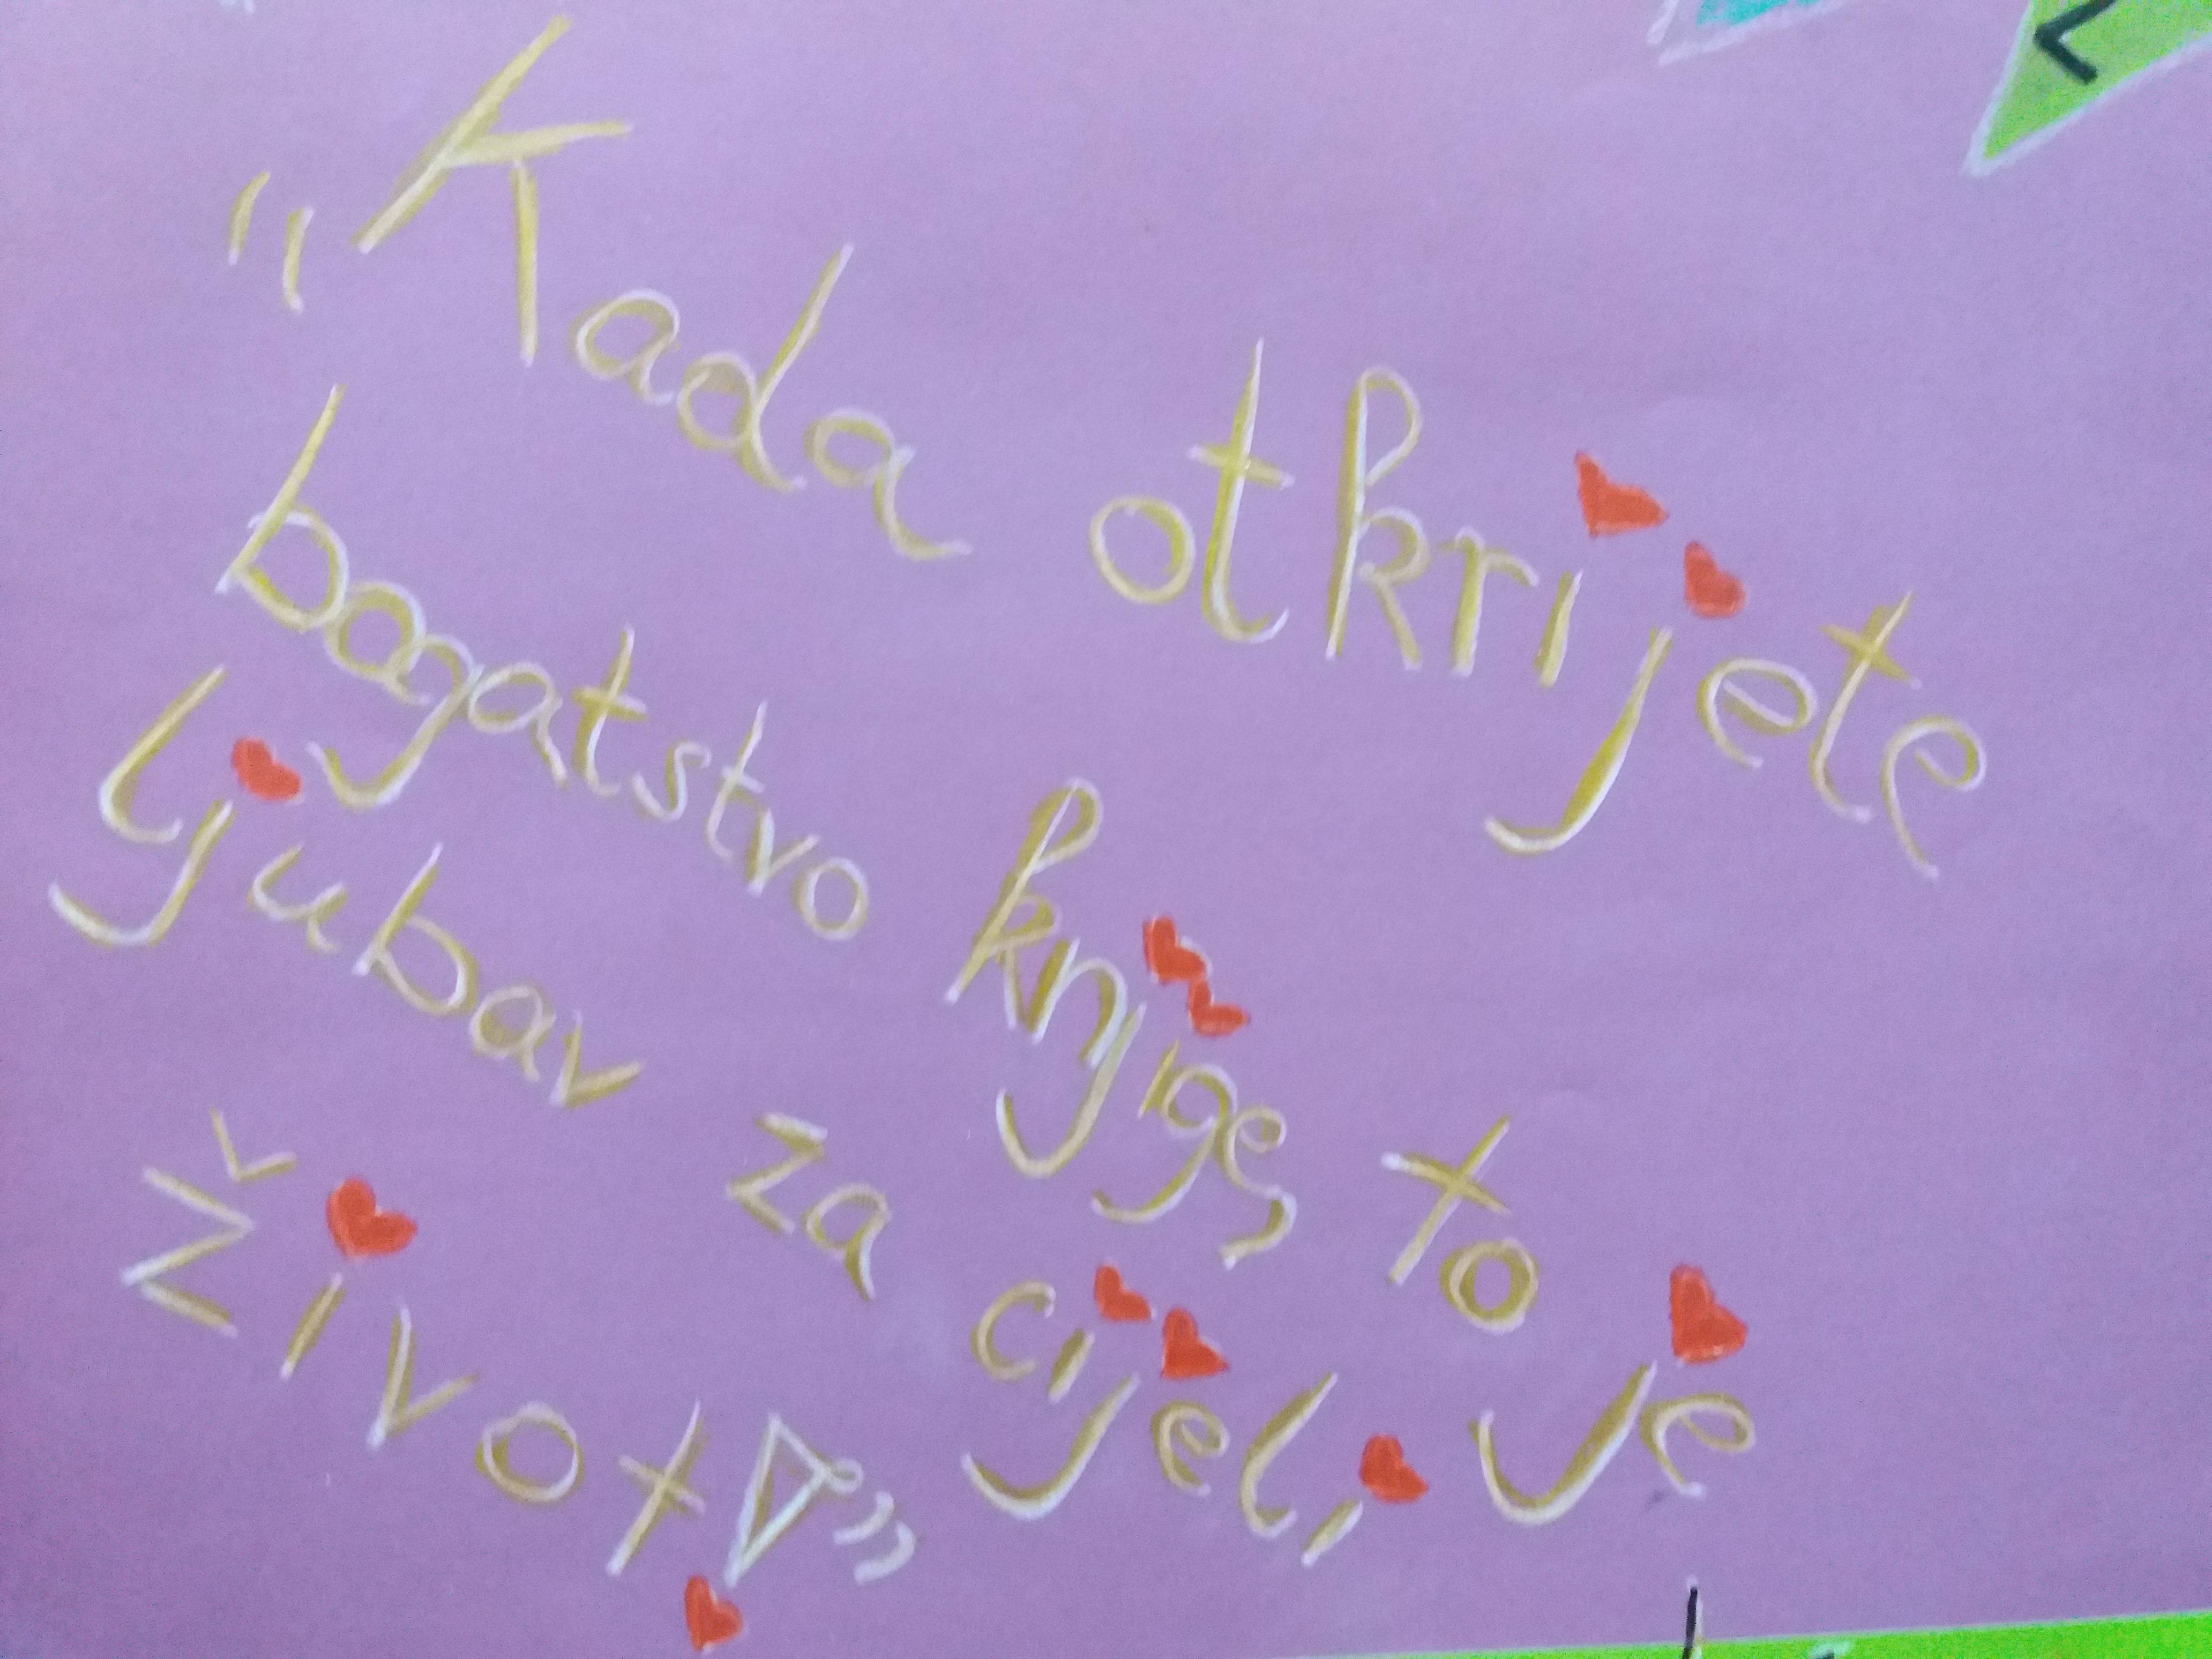 „Kada otkrijete
bogatstvo knjige, to je
ljubav za cijeli
život!”